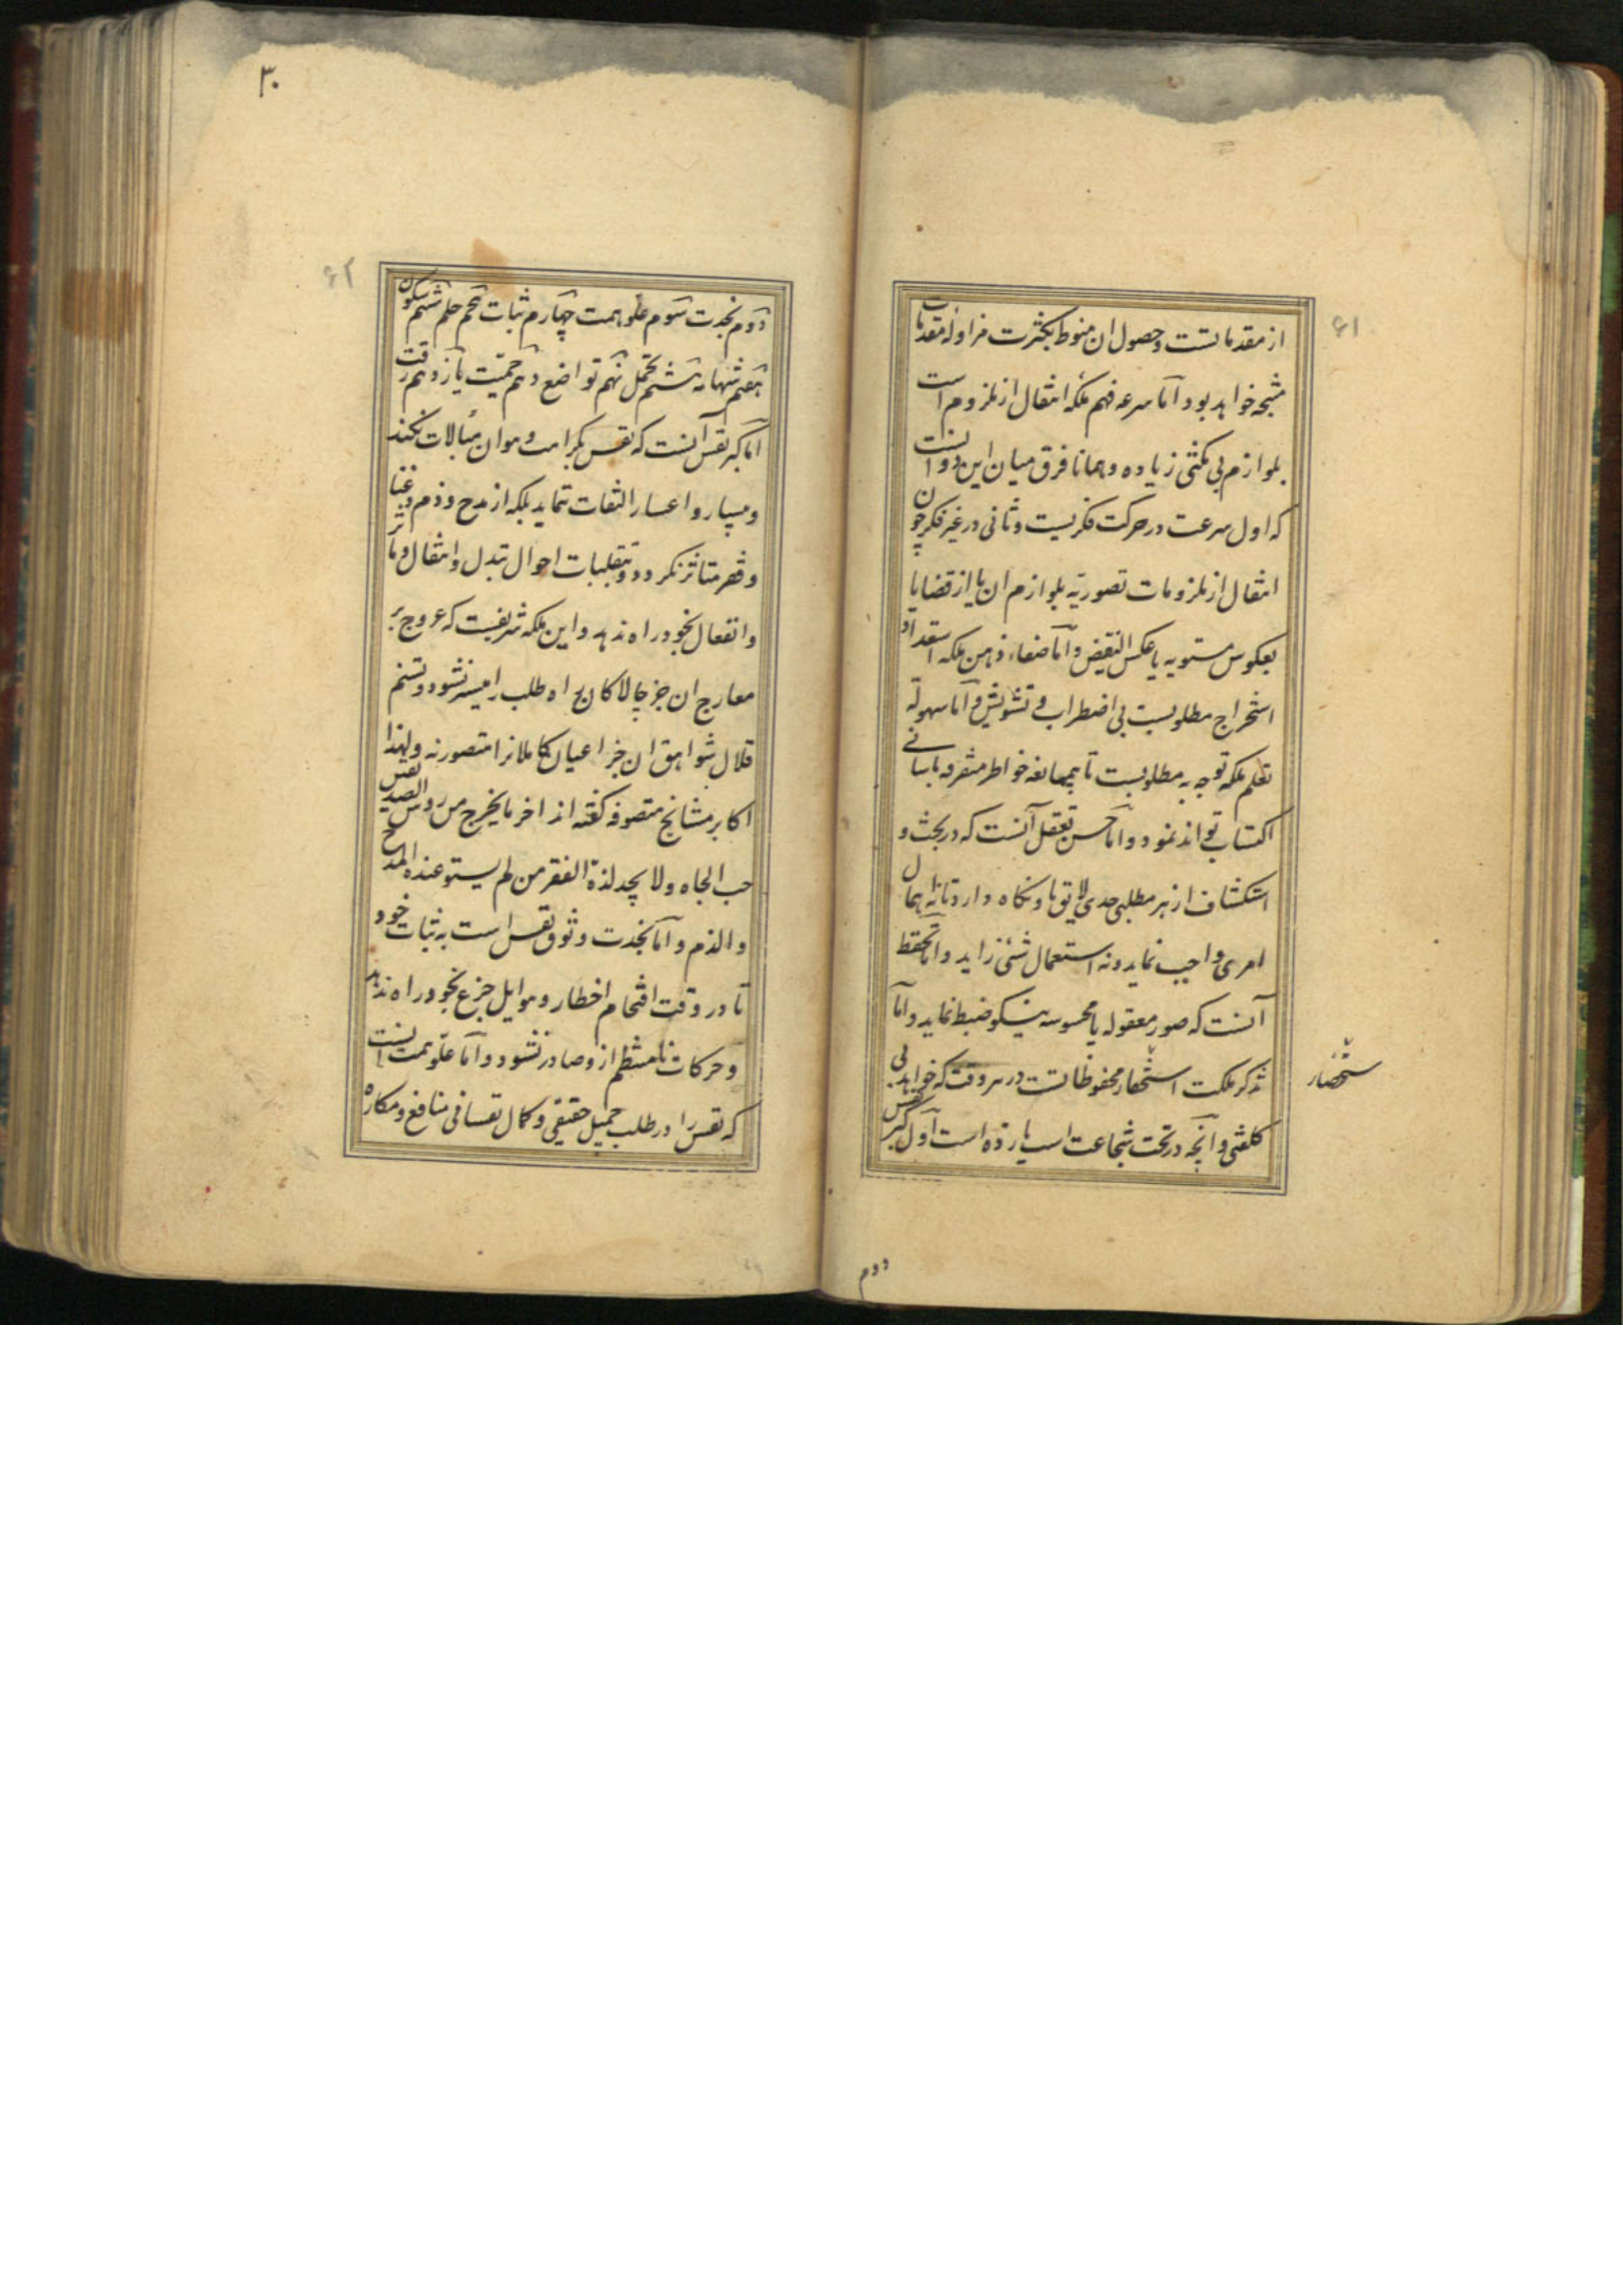 ۶۱
از مقدماتست و حصول ان منوط بکثرت مزاوله مقدمات
منتجه خواهد بود اما سرعه فهم ملکه انتقال از ملزوم است
بلوازم بی مکثی زیاده و همانا فرق میان این دو انست
که اول سرعت در حرکت فکریست و ثانی در غیر فکر چون
انتقال از ملزومات تصوریه بلوازم ان یا از قضایا
بعکوس مستویه یا عکس النقیض و اما صفاء ذهن ملکه استعداد
استخراج مطلوبست بی اضطراب و تشویش و اما سهوله
تعلم ملکه توجه به مطلوبست تا بی ممانعه خواطر متفرقه باسانی
اکتساب تواند نمود و اما حسن تعقل آنست که در بحث و
استکشاف از هر مطلبی حدی لایق باو نکاه دارد تا نه اهمال
امری واجب نماید و نه استعمال شئی زاید و اما تحفظ
آنست که صور معقوله یا محسوسه نیکو ضبط نماید و اما
تذکر ملکت استحضار محفوظاتست در هر وقت که خواهد بی
کلفتی و انچه در تحت شجاعت است یازده است اول کبر نفس
ستحضار
دوم
۳۰
۶۲
دوم نجدت سوم علو همت چهارم ثبات پنجم حلم ششم سکون
هفتم شهامه هشتم تحمل نهم تواضع دهم حمیت یازدهم رقت
اما کبر نفس آنست که نفس بکرامت و هوان مبالات نکند
و بیسار و اعسار التفات ننماید بلکه از مدح و ذم و غنا
و فقر متاثر نکردد و بتقلبات احوال تبدل و انتقال و تاثر
و انفعال بخود راه ندهد و این ملکه شریفیست که عروج بر
معارج ان جز چالاکان راه طلب را میسر نشود و تسنم
قلال شواهق ان جز اعیان کاملانرا متصور نه و لهذا
اکابر مشایخ متصوفه کفته اند اخر ما یخرج من روس الصدیقین
حب الجاه و لا یجد لذة الفقر من لم یستو عنده المدح
و الذم و اما نجدت وثوق نفس است به ثبات خود
تا در وقت اقتحام اخطار و هوایل جزع بخود راه ندهد
و حرکات نامنتظم از و صادر نشود و اما علو همت انست
که نفس را در طلب جمیل حقیقی و کمال نفسانی منافع و مکاره